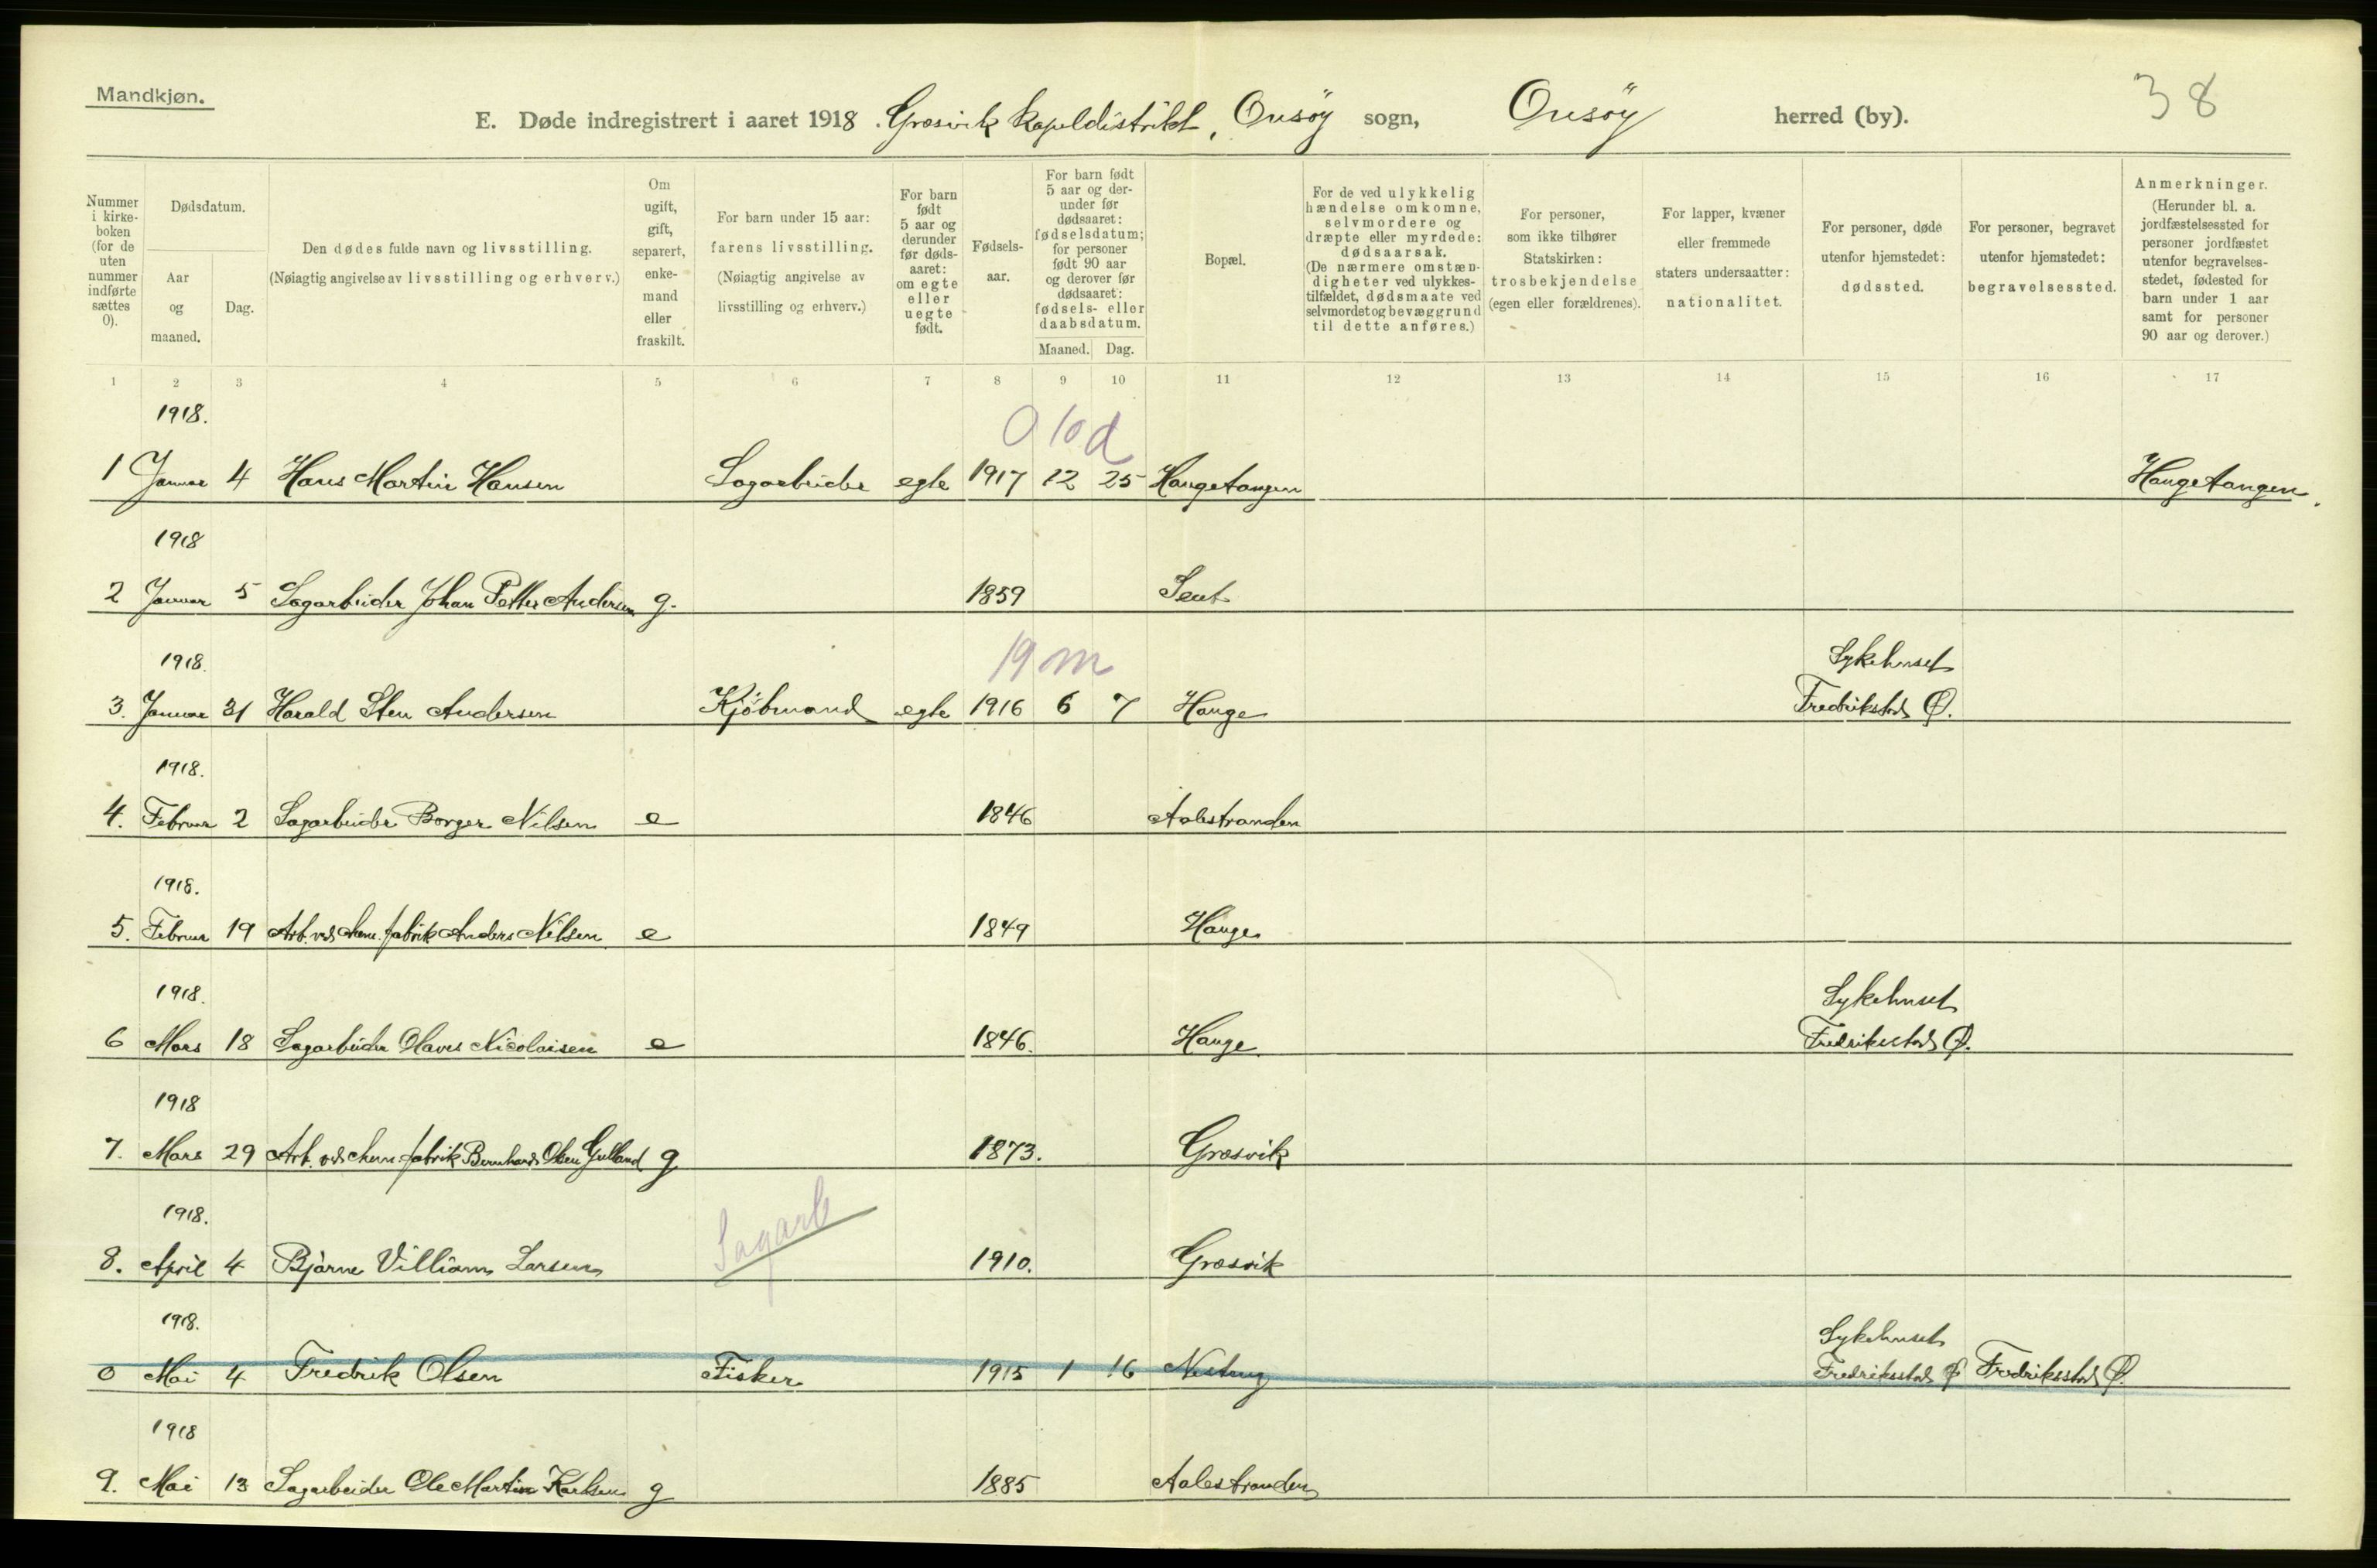 Mandkjøn.
38
E. Døde indregistrert i aaret 1918. Græsvik kapeldistrikt, Onsöy sogn, Onsöy herred (by).
Nummer i kirkeboken (for de uten nummer indførte sættes 0).
Dødsdatum.
Aar og maaned.
Dag.
Den dødes fulde navn og livsstilling.
(Nøiagtig angivelse av livsstilling og erhverv.)
Om ugift, gift, separert, enkemand eller fraskilt.
For barn under 15 aar: farens livsstilling.
(Nøiagtig angivelse av livsstilling og erhverv.)
For barn født 5 aar og derunder før dødsaaret: om egte eller uegte født.
Fødselsaar.
For barn født 5 aar og derunder før dødsaaret: fødselsdatum; for personer født 90 aar og derover før dødsaaret: fødsels- eller daabsdatum.
Maaned.
Dag.
Bopæl.
For de ved ulykkelig hændelse omkomne, selvmordere og dræpte eller myrdede: dødsaarsak.
(De nærmere omstændigheter ved ulykkestilfældet, dødsmaate ved selvmordet og bevæggrund til dette anføres.)
For personer, som ikke tilhører Statskirken: trosbekjendelse (egen eller forældrenes).
For lapper, kvæner eller fremmede staters undersaatter: nationalitet.
For personer, døde utenfor hjemstedet: dødssted.
For personer, begravet utenfor hjemstedet: begravelsessted.
Anmerkninger.
(Herunder bl. a. jordfæstelsessted for personer jordfæstet utenfor begravelsesstedet, fødested for barn under 1 aar samt for personer 90 aar og derover.)
1 2 3 4 5 6 7 8 9 10 11 12 13 14 15 16 17
1918.
0 10 d
1 Januar 4 Hans Martin Hansen Sagarbeider egte 1917 12 25 Haugetangen Haugetangen.
1918
2 Januar 5 Sagarbeider Johan Petter Andersen g. 1859 Seut
1918.
19 m
Sykehuset
3. Januar 31 Harald Sten Andersen Kjöbmand egte 1916 6 7 Hauge Fredrikstad Ø.
1918.
4. Februar 2 Sagarbeider Borger Nilsen e 1846 Aalestranden
1918.
5. Februar 19 Arb. ved chem. fabrik Anders Nilsen e 1849 Hauge
1918.
Sykehuset
6 Mars 18 Sagarbeider Olaves Nicolaisen e 1846. Hauge. Fredriksstad Ø.
1918
7. Mars 29 Arb. ved chem fabrik Bernhard Olsen Gulland g 1873. Græsvik
1918.
Sagarb
8. April 4 Bjarne Villiam Larsen 1910. Græsvik
1918.
Sykehuset
0 Mai 4 Fredrik Olsen Fisker 1915 1 16 Fredriksstad Ø Fredriksstad Ø.
1918
9. Mai 13 Sagarbeider Ole Martin Karlsen g 1885 Aalestranden